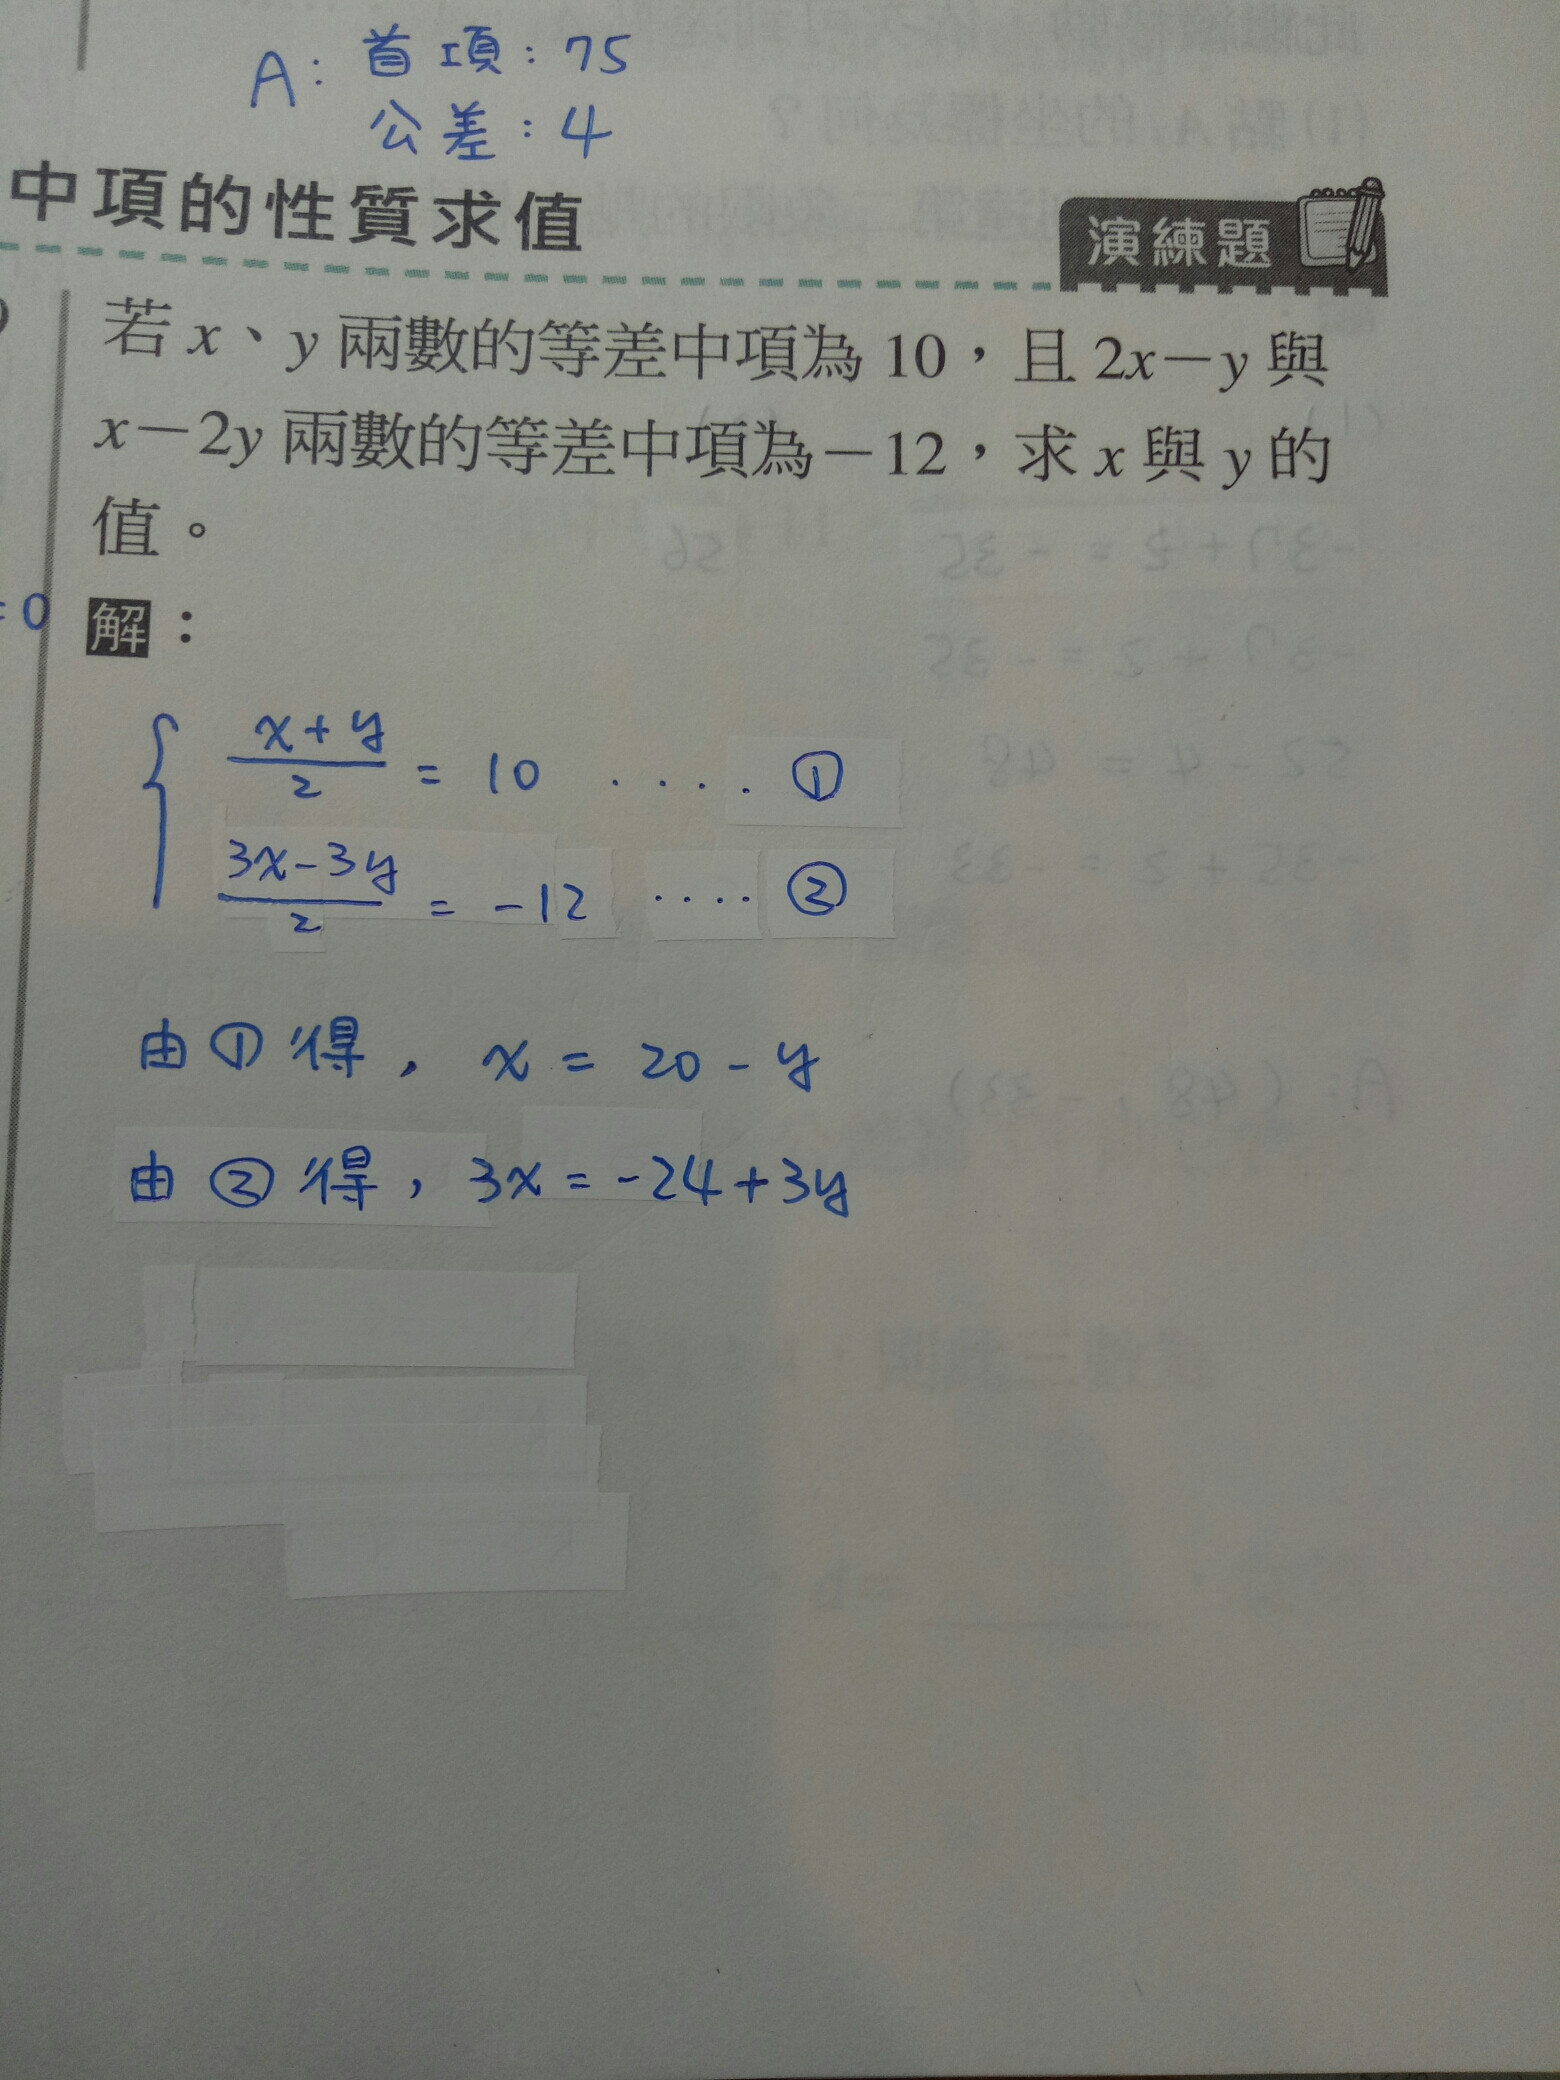 A: 首項: 75
公差: 4
中項的性質求值
演練題
若 x、y 兩數的等差中項為 10，且 2x－y 與
x－2y 兩數的等差中項為－12，求 x 與 y 的
值。
= 0
解：
x+y/2 = 10 .... ①
3x-3y/2 = -12 .... ②
由①得, x = 20 - y
由②得, 3x = -24 + 3y